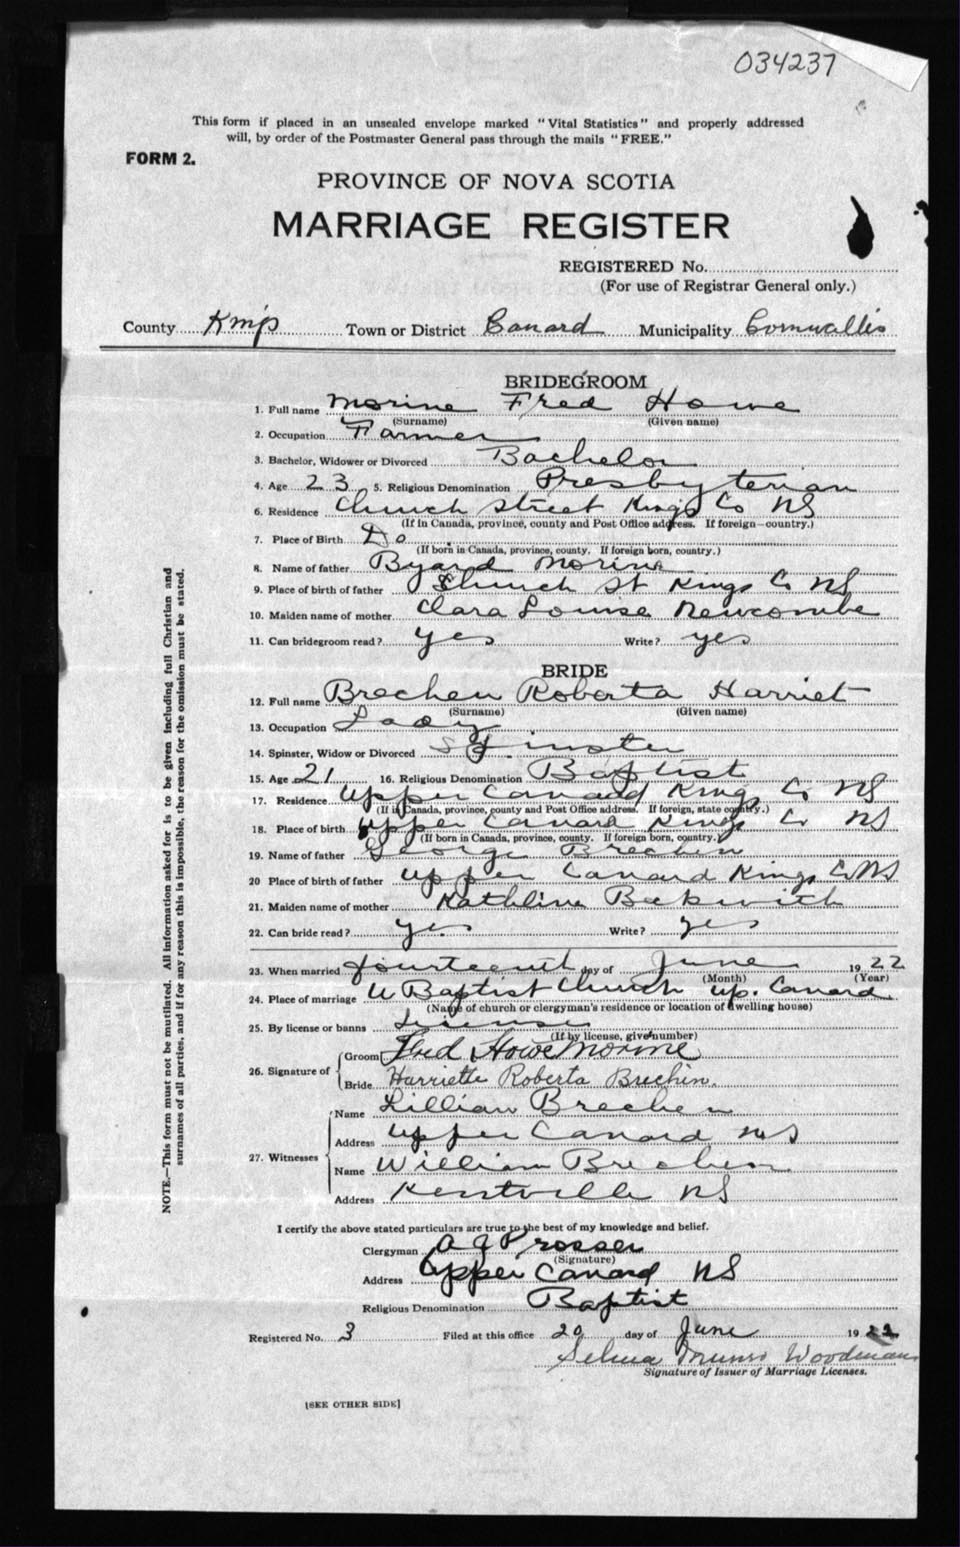 034237
This form if placed in an unsealed envelope marked "Vital Statistics" and properly addressed
will, by order of the Postmaster General pass through the mails "FREE."
FORM 2.
PROVINCE OF NOVA SCOTIA
MARRIAGE REGISTER
REGISTERED No.
(For use of Registrar General only.)
County Kings Town or District Canard Municipality Cornwallis
BRIDEGROOM
1. Full name Morine Fred Howe
(Surname) (Given name)
2. Occupation Farmer
3. Bachelor, Widower or Divorced Bachelor
4. Age 23 5. Religious Denomination Presbyterian
6. Residence Church Street Kings Co NS
(If in Canada, province, county and Post Office address. If foreign—country.)
7. Place of Birth Do
(If born in Canada, province, county. If foreign born, country.)
8. Name of father Byard Morine
9. Place of birth of father Church St Kings Co NS
10. Maiden name of mother Clara Louise Newcombe
11. Can bridegroom read? yes Write? yes
BRIDE
12. Full name Brechen Roberta Harriet
(Surname) (Given name)
13. Occupation Lady
14. Spinster, Widow or Divorced Spinster
15. Age 21 16. Religious Denomination Baptist
17. Residence Upper Canard Kings Co NS
(If in Canada, province, county and Post Office address. If foreign, state country.)
18. Place of birth Upper Canard Kings Co NS
(If born in Canada, province, county. If foreign born, country.)
19. Name of father George Brechin
20 Place of birth of father Upper Canard Kings Co NS
21. Maiden name of mother Kathline Beckwith
22. Can bride read? yes Write? yes
23. When married fourteenth day of June 1922
(Month) (Year)
24. Place of marriage U Baptist Church Up. Canard
(Name of church or clergyman's residence or location of dwelling house)
25. By license or banns License
(If by license, give number)
26. Signature of Groom Fred Howe Morine
Bride Harriette Roberta Brechin.
27. Witnesses Name Lillian Brechen
Address Upper Canard NS
Name William Brechen
Address Kentville NS
I certify the above stated particulars are true to the best of my knowledge and belief.
Clergyman A J Prosser
(Signature)
Address Upper Canard NS
Religious Denomination Baptist
Registered No. 3 Filed at this office 20 day of June 1922
Selina Munro Woodman
Signature of Issuer of Marriage Licenses.
[SEE OTHER SIDE]
NOTE.—This form must not be mutilated. All information asked for is to be given including full Christian and
surnames of all parties, and if for any reason this is impossible, the reason for the omission must be stated.